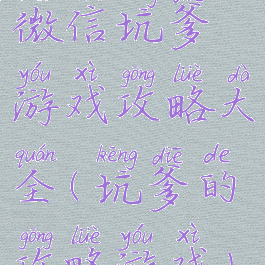 微信坑爹
yóu xì gōng lüè dà
游戏攻略大
quán kēng diē de
全(坑爹的
gōng lüè yóu xì
攻略游戏)